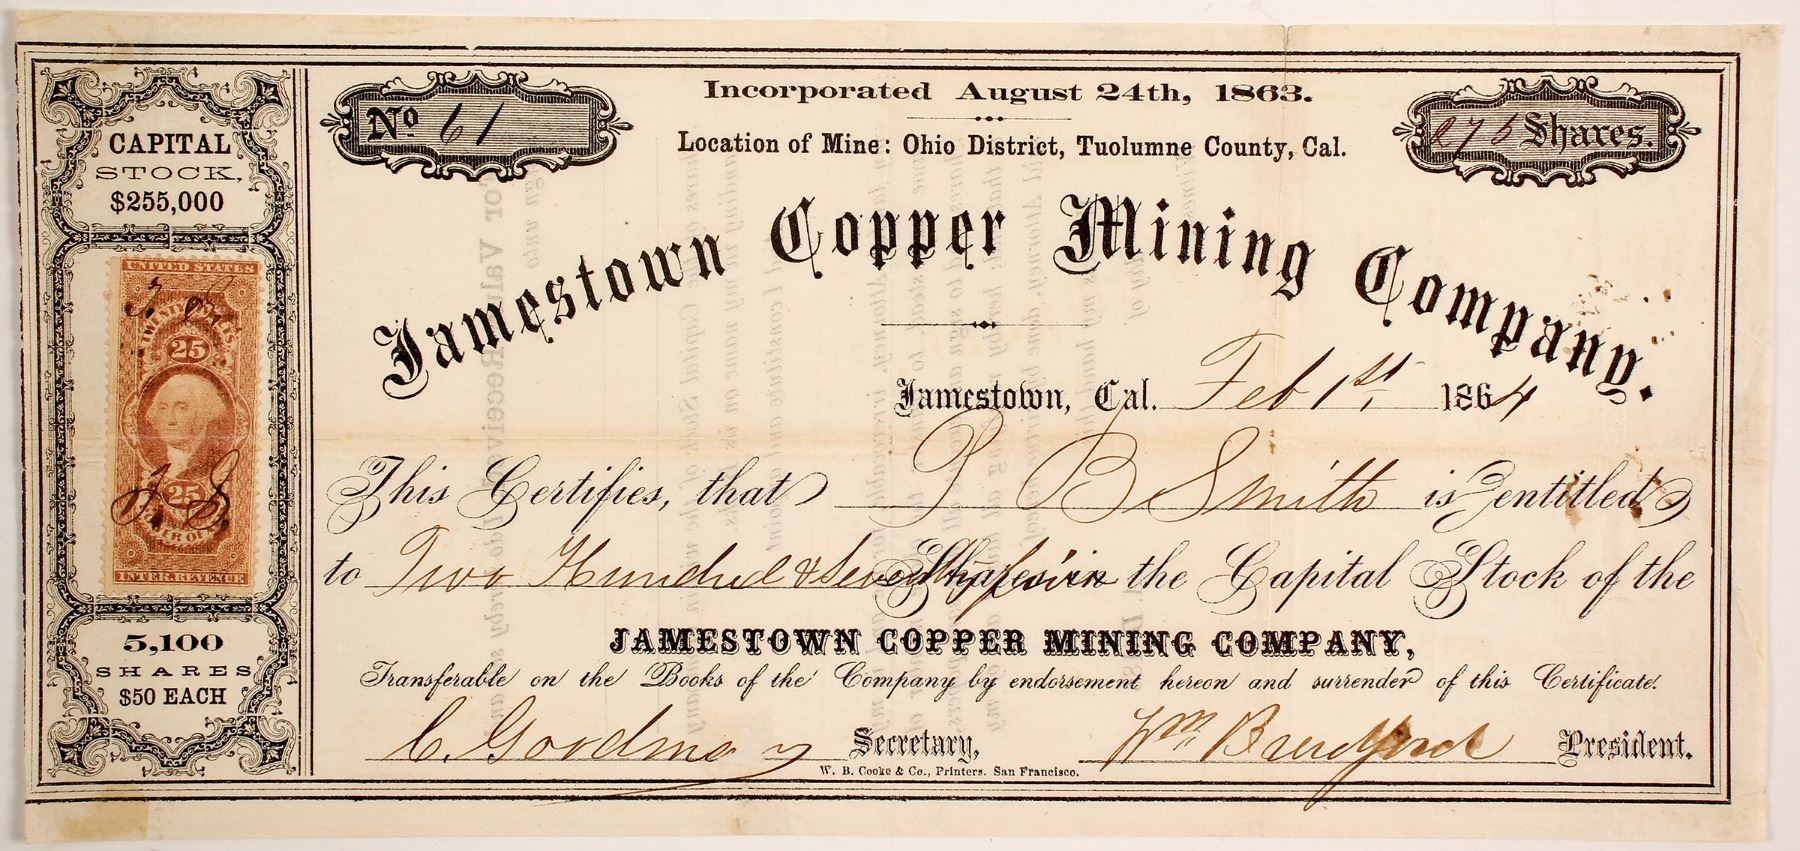 Incorporated August 24th, 1863.
No 61
Location of Mine: Ohio District, Tuolumne County, Cal.
275 Shares.
CAPITAL
STOCK,
$255,000
Jamestown Copper Mining Company.
Jamestown, Cal. Feb 1st, 1864
UNITED STATES
25
25
INTER. REVENUE
This Certifies, that B Smith is entitled
to Two Hundred & Seventy five Shares in the Capital Stock of the
JAMESTOWN COPPER MINING COMPANY,
Transferable on the Books of the Company by endorsement hereon and surrender of this Certificate.
5,100
SHARES
$50 EACH
C. Goodman Secretary,
Wm President.
W. B. Cooke & Co., Printers. San Francisco.